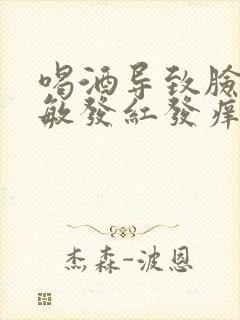 喝酒导致臉
敏發紅發痒
杰森-波恩